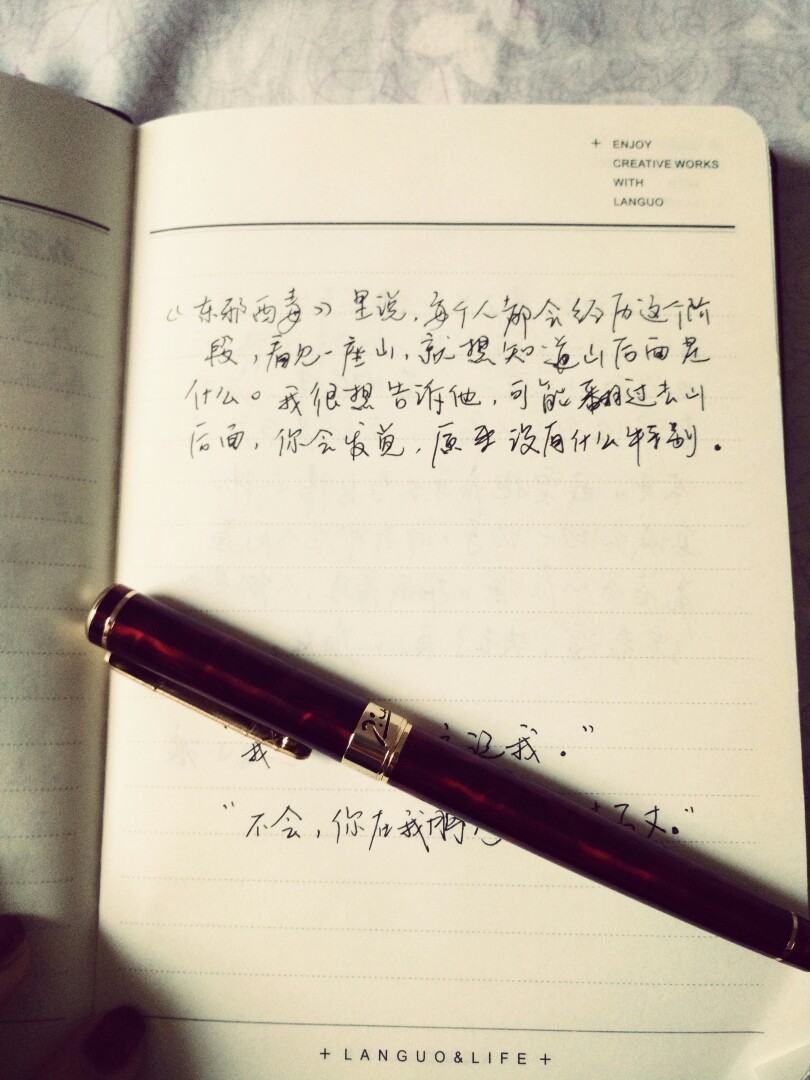 + ENJOY
CREATIVE WORKS
WITH
LANGUO
《东邪西毒》里说，每个人都会经历这个阶
段，看见一座山，就想知道山后面是
什么。我很想告诉他，可能翻过去山
后面，你会发觉，原来没有什么特别．
"我 记我．"
"不会，你在我 丈．"
+ LANGUO&LIFE +